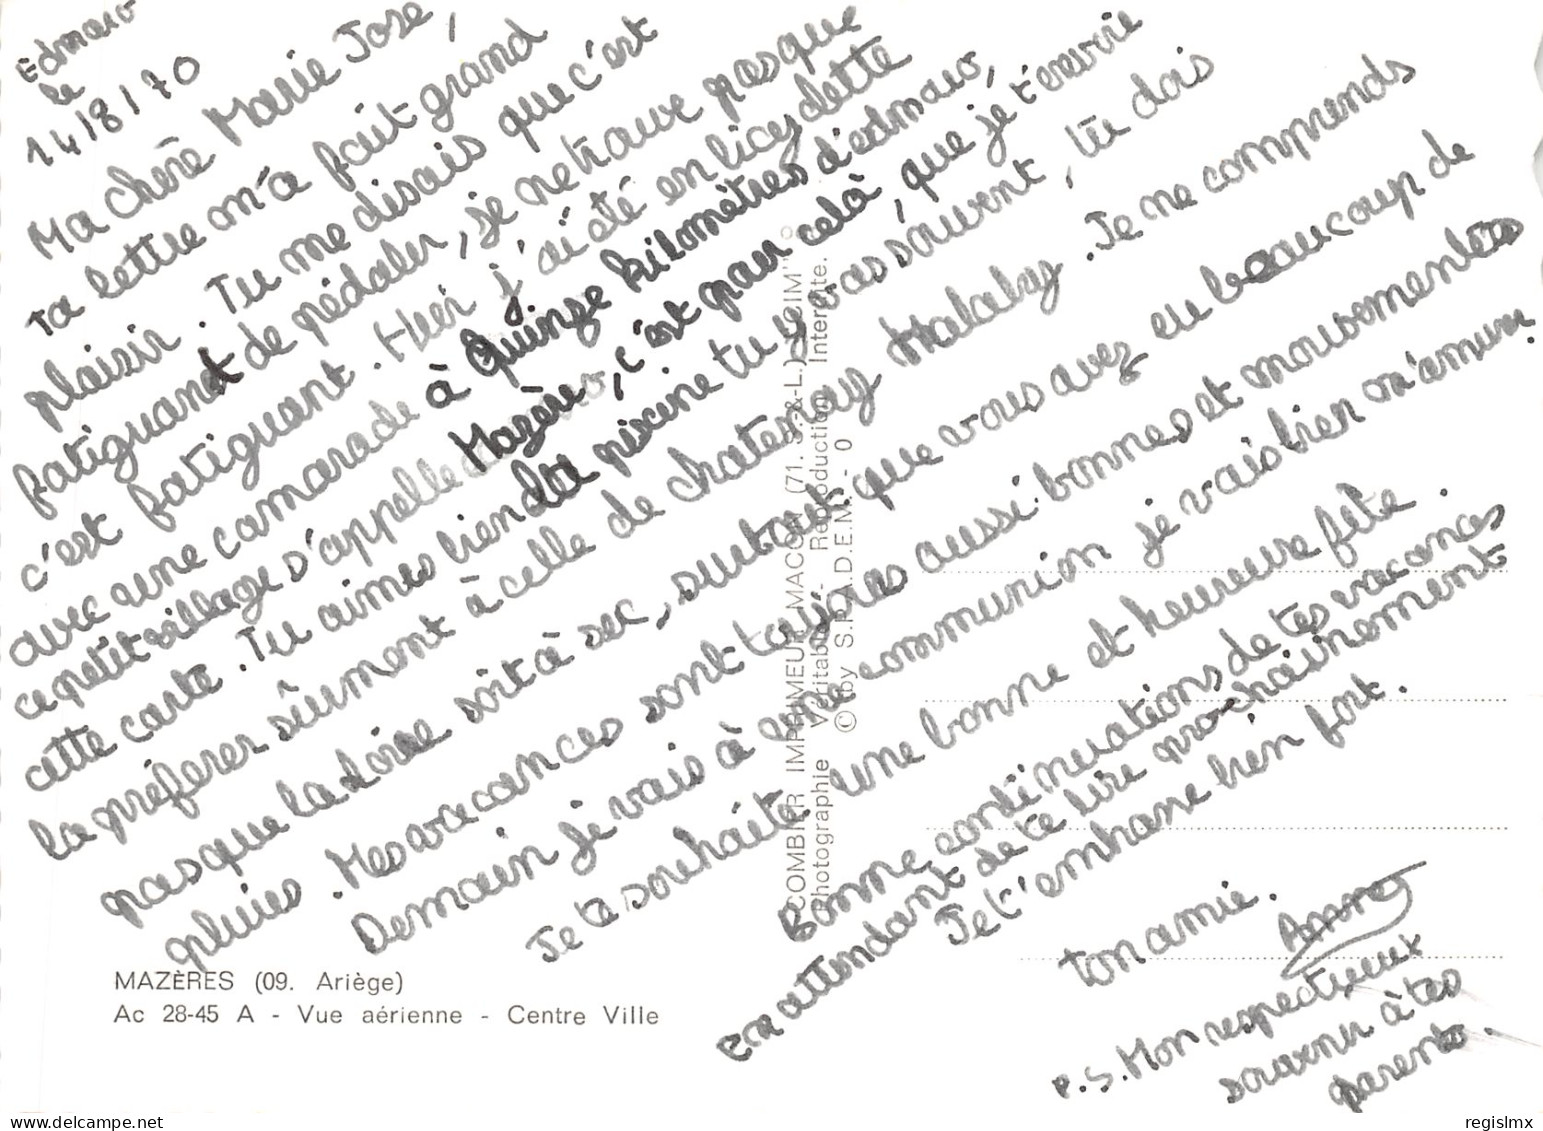 Edmaro
le
14/8/70
Ma chère Marie Jose,
ta lettre m'a fait grand
plaisir. Tu me disais que c'est
fatiguant de pédaler, je ne trouve pas que
c'est fatiguant. Hier j'ai été en bicyclette
avec une camarade à Quinze kilomètres d'edmaro,
ce petit village s'appelle Mazère, c'est pour celà, que je t'envoie
cette carte. Tu aimes bien la piscine tu y vas souvent, tu dois
la préferer sûrement à celle de chatenay Malabry. Je ne comprends
pas que la Loire soit à sec, surtout que vous avez eu beaucoup de
pluies. Mes vacances sont toujours aussi bonnes et mouvementées
Demain je vais à une communion je vais bien m'amuser.
Je te souhaite une bonne et heureuse fête.
Bonne continuations de tes vacances
en attendant de te lire prochainement
Je t'embrasse bien fort.
ton amie.
Anne
P.S. Mon respectueux
souvenir à tes
parents.
MAZÈRES (09. Ariège)
Ac 28-45 A - Vue aérienne - Centre Ville
COMBIER IMPRIMEUR MACON (71. S.-&-L.) "CIM"
Photographie Véritable - Reproduction Interdite.
© by S.P.A.D.E.M. - 0
regislmx